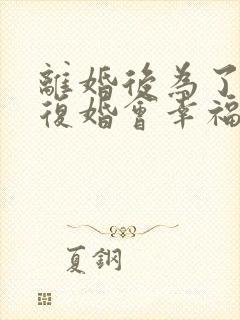 離婚後為了
復婚會幸福
夏鋼